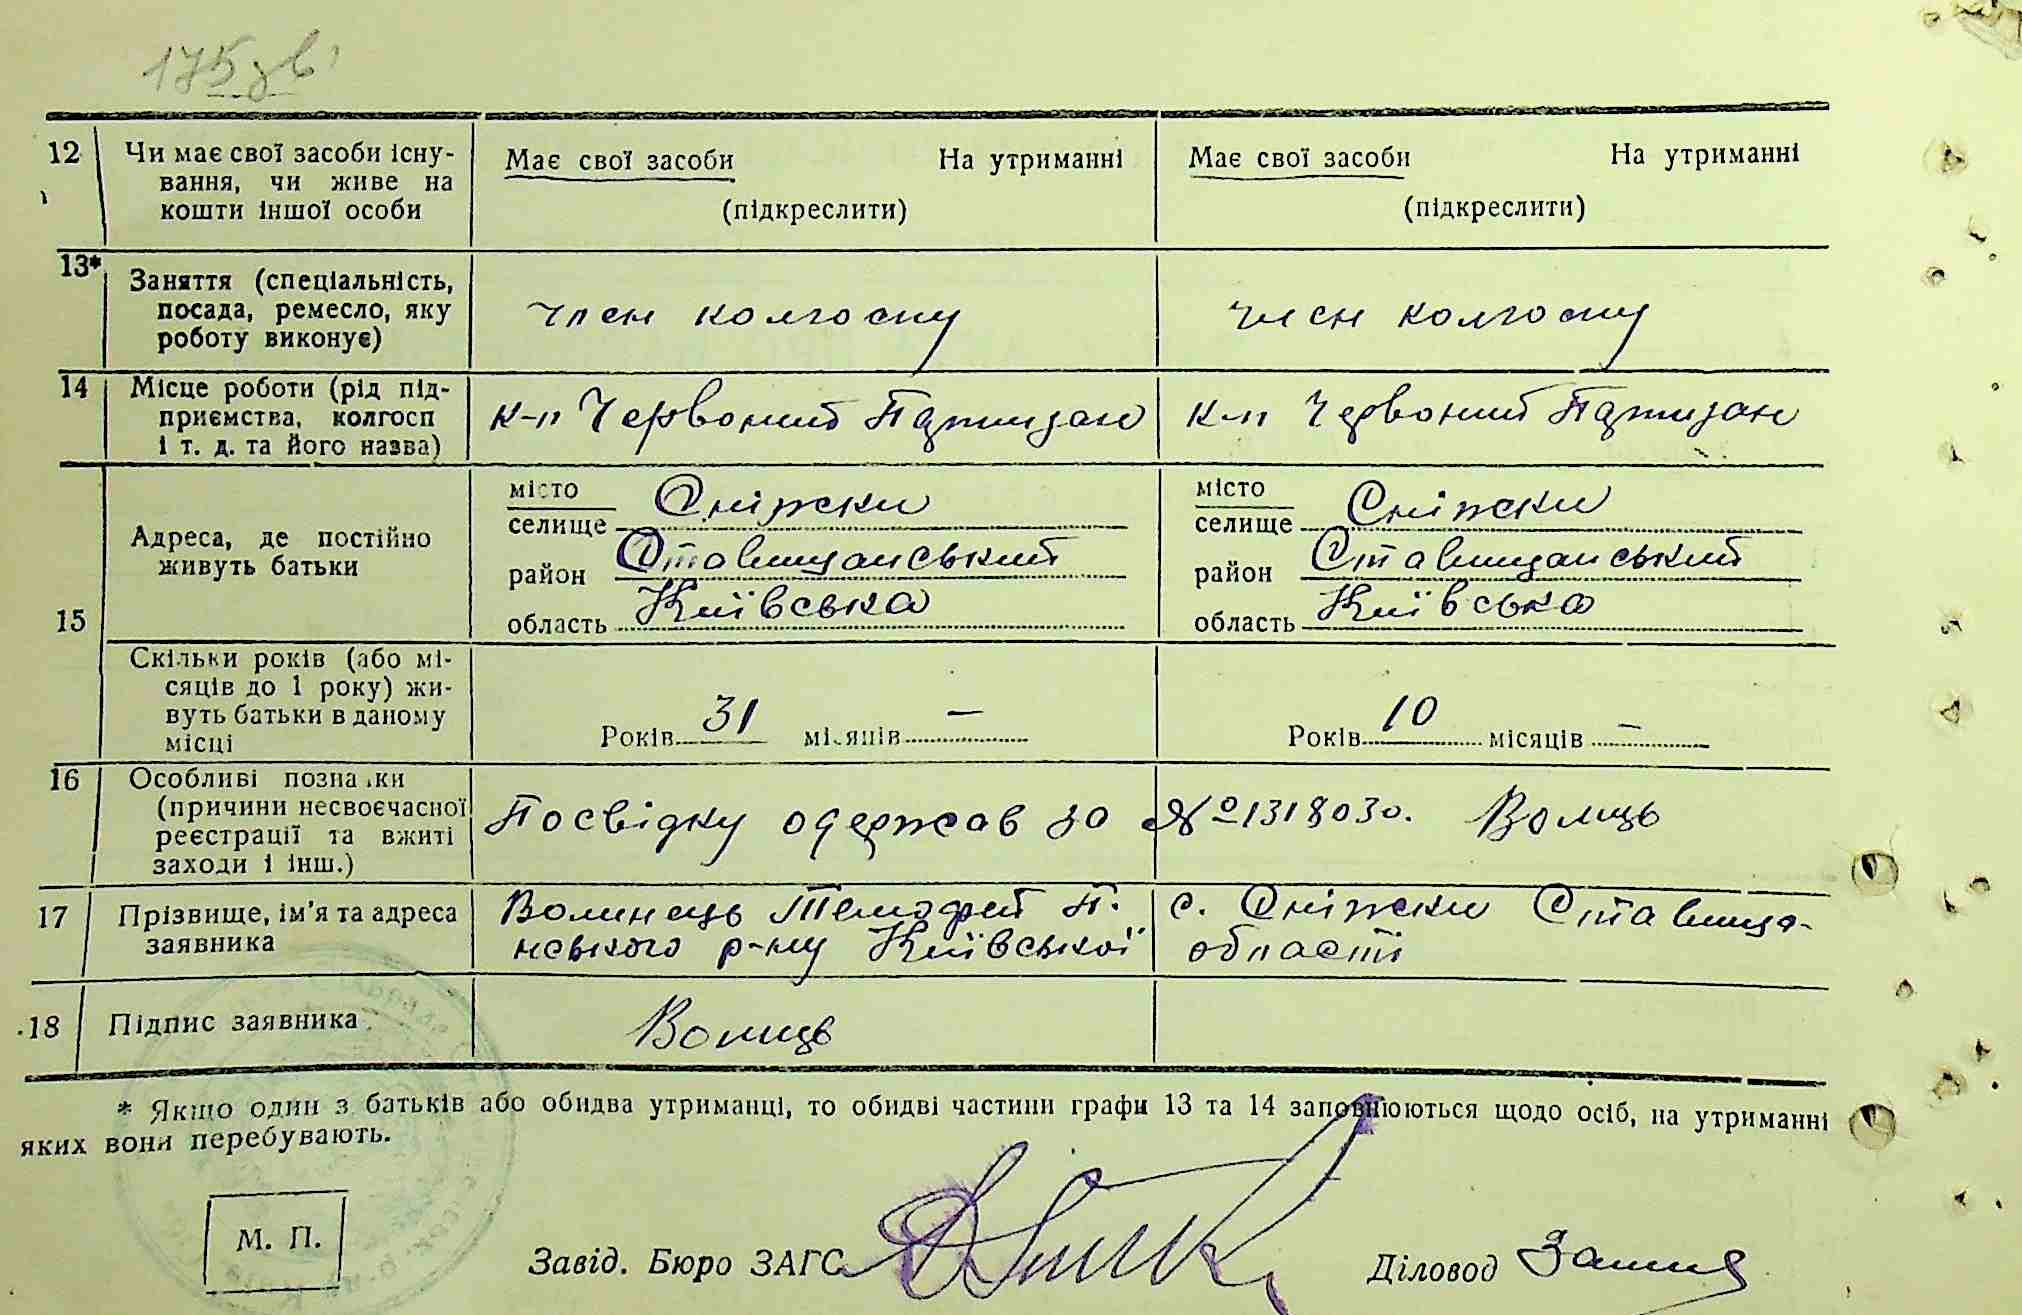 175 зв.
12 Чи має свої засоби існу-
вання, чи живе на
кошти іншої особи
Має свої засоби На утриманні
(підкреслити)
Має свої засоби На утриманні
(підкреслити)
13* Заняття (спеціальність,
посада, ремесло, яку
роботу виконує)
член колгоспу
член колгоспу
14 Місце роботи (рід під-
приємства, колгосп
і т. д. та його назва)
к-п Червоний Партизан
к-п Червоний Партизан
15
Адреса, де постійно
живуть батьки
місто
селище Сніжки
район Ставищанський
область Київська
місто
селище Сніжки
район Ставищанський
область Київська
Скільки років (або мі-
сяців до 1 року) жи-
вуть батьки в даному
місці
Років 31 місяців —
Років 10 місяців —
16 Особливі познаки
(причини несвоєчасної
реєстрації та вжиті
заходи і інш.)
Посвідку одержав за № 1318030.
17 Прізвище, ім'я та адреса
заявника
Волинець Темофей П. с. Сніжки Ставища-
нського р-ну Київської області
18 Підпис заявника
* Якщо один з батьків або обидва утриманці, то обидві частини графи 13 та 14 заповнюються щодо осіб, на утриманні
яких вони перебувають.
М. П.
Завід. Бюро ЗАГС
Діловод